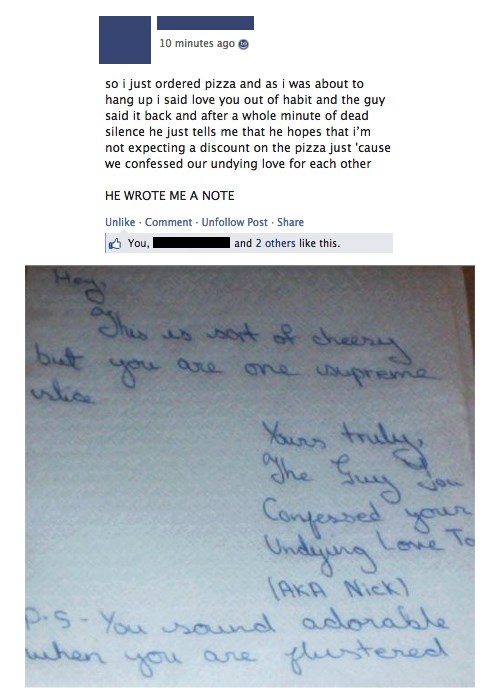 10 minutes ago
so i just ordered pizza and as i was about to
hang up i said love you out of habit and the guy
said it back and after a whole minute of dead
silence he just tells me that he hopes that i'm
not expecting a discount on the pizza just 'cause
we confessed our undying love for each other
HE WROTE ME A NOTE
Unlike · Comment · Unfollow Post · Share
You, and 2 others like this.
Hey,
This is sort of cheesy
but you are one supreme
slice
Yours truly,
The Guy You
Confessed your
Undying Love To
(AKA Nick)
P.S - You sound adorable
when you are flustered